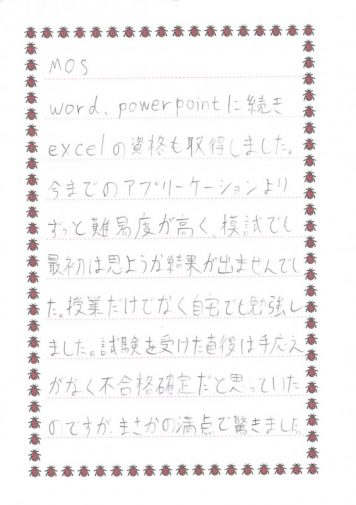 MOS
word、powerpointに続き
excelの資格も取得しました。
今までのアプリーケーションより
ずっと難易度が高く、模試でも
最初は思うような結果が出ませんでし
た。授業だけでなく自宅でも勉強し
ました。試験を受けた直後は手応え
がなく不合格確定だと思っていた
のですが、まさかの満点で驚きました。